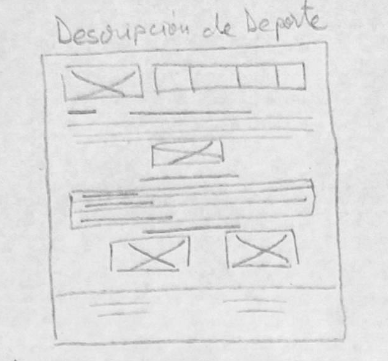 Descripción de Deporte